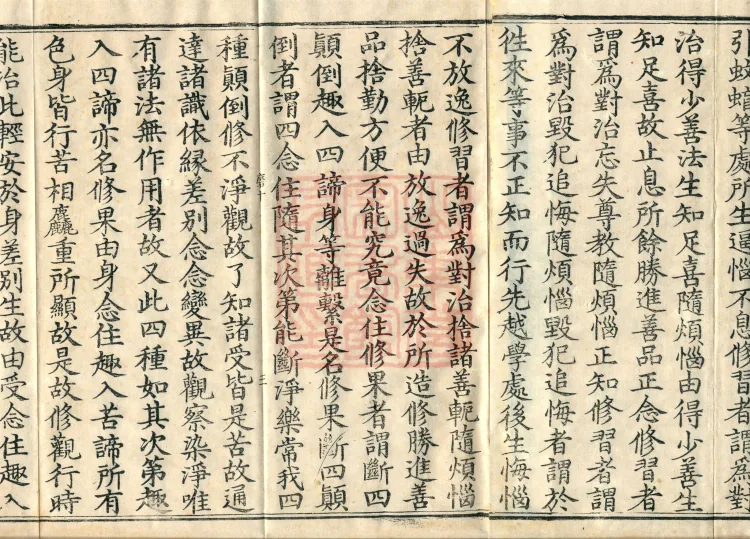 引蚊䖟等處所生逼惱不息修習者謂爲對
治得少善法生知足喜隨煩惱由得少善生
知足喜故止息所餘勝進善品正念修習者
謂爲對治忘失尊教隨煩惱正知修習者謂
爲對治毀犯追悔隨煩惱毀犯追悔者謂於
徃來等事不正知而行先越學處後生悔惱
不放逸修習者謂爲對治捨諸善軛隨煩惱
捨善軛者由放逸過失故於所造修勝進善
品捨勤方便不能究竟念住修果者謂斷四
顛倒趣入四諦身等離繫是名修果斷四顛
倒者謂四念住隨其次第能斷淨樂常我四
三
種顛倒修不淨觀故了知諸受皆是苦故通
達諸識依緣差別念念變異故觀察染淨唯
有諸法無作用者故又此四種如其次第趣
入四諦亦名修果由身念住趣入苦諦所有
色身皆行苦相麤重所顯故是故修觀行時
能治此輕安於身差別生故由受念住趣入